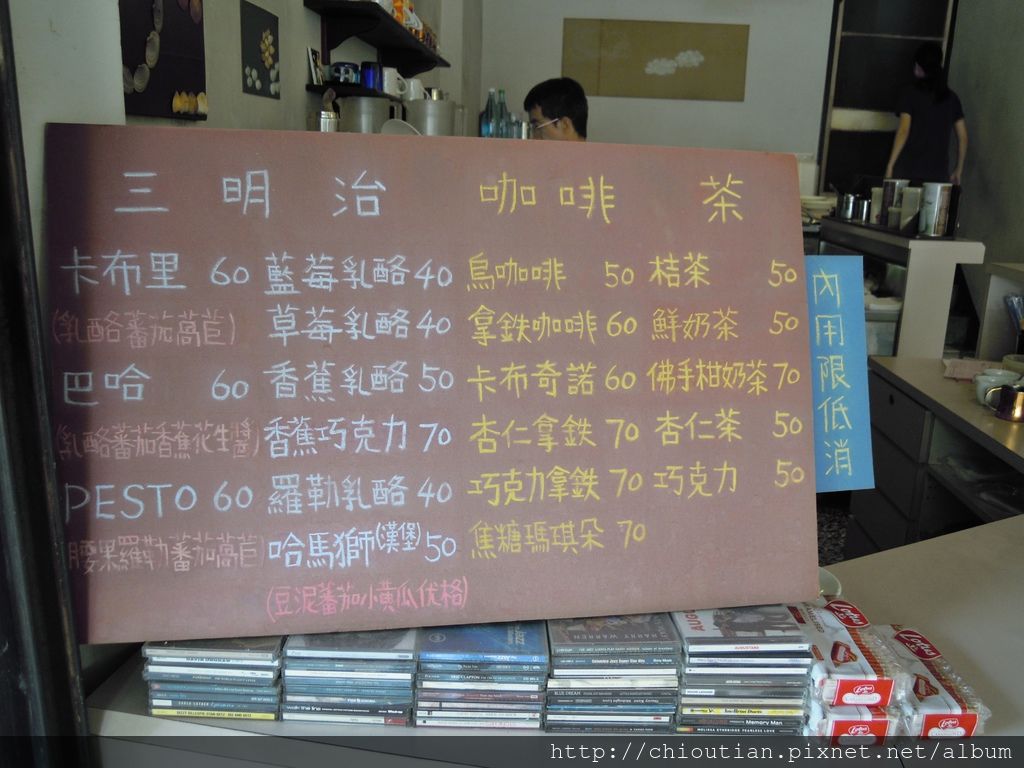 三明治 咖啡 茶
卡布里 60 藍莓乳酪 40 烏咖啡 50 桔茶 50
(乳酪蕃茄萵苣) 草莓乳酪 40 拿鐵咖啡 60 鮮奶茶 50
巴哈 60 香蕉乳酪 50 卡布奇諾 60 佛手柑奶茶 70
(乳酪蕃茄香蕉花生醬) 香蕉巧克力 70 杏仁拿鐵 70 杏仁茶 50
PESTO 60 羅勒乳酪 40 巧克力拿鐵 70 巧克力 50
(腰果羅勒蕃茄萵苣) 哈馬獅(漢堡) 50 焦糖瑪琪朵 70
(豆泥蕃茄小黃瓜优格)
內用限低消
HARRY WARREN
Memory Man
http://chioutian.pixnet.net/album